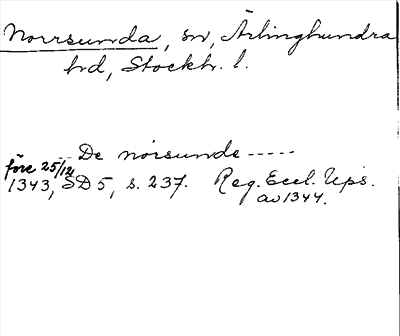 Norrsunda, sn, Ärlinghundra
hd, Stockh. l.
-- De norsunde -----
före 25/12
1343, SD 5, s. 237. Reg. Eccl. Ups.
av 1344.